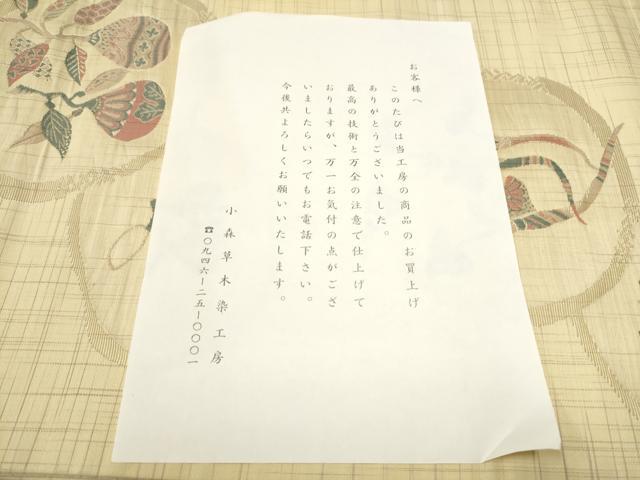 お客様へ
このたびは当工房の商品のお買上げ
ありがとうございました。
最高の技術と万全の注意で仕上げて
おりますが、万一お気付の点がござ
いましたらいつでもお電話下さい。
今後共よろしくお願いいたします。
小森草木染工房
☎〇九四六ー二五ー〇〇〇一